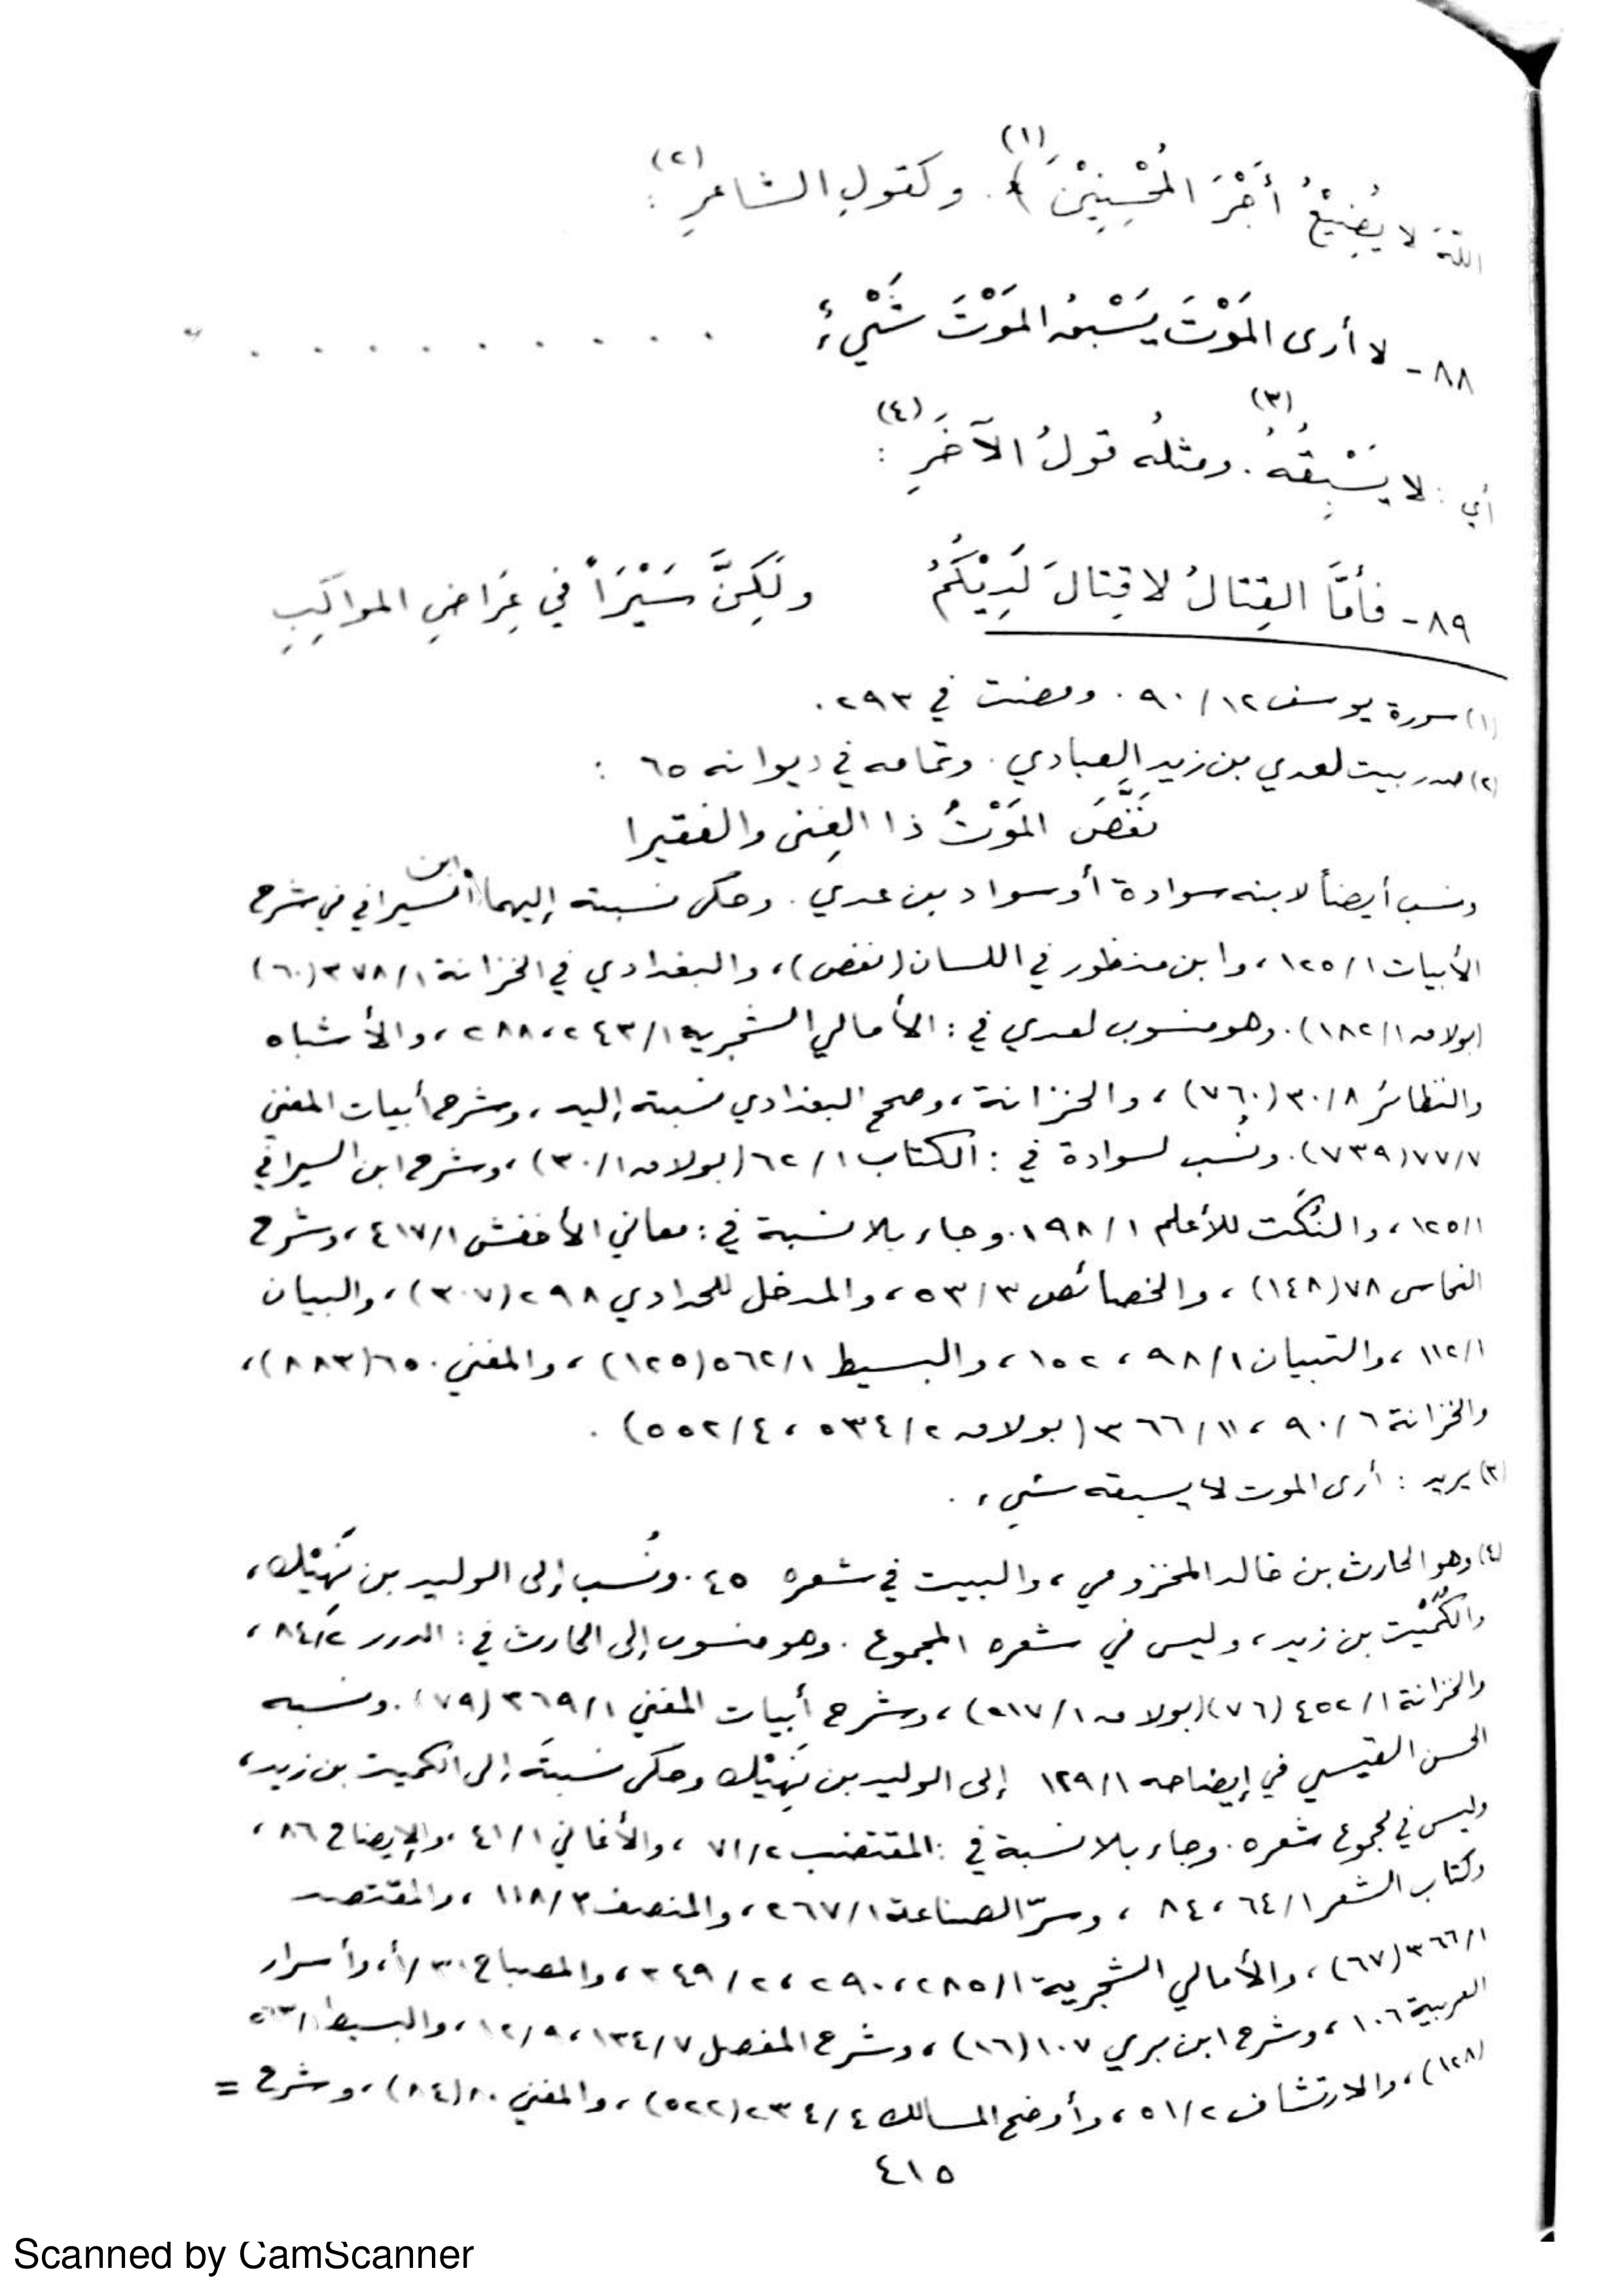 (١) (٢)
اللهَ لا يُضِيْعُ أَجْرَ المُحْسِنِيْنَ ﴾ . وكقولِ الشاعرِ :
٨٨ - لا أرى المَوْتَ يَسْبِقُ المَوْتَ شَيْءٌ . . . . . . . . . .
(٣) (٤)
أي : لا يَسْبِقُهُ . ومثلُه قولُ الآخَرِ :
٨٩ - فأمَّا القِتالُ لا قِتالَ لَدِيْكُمُ ولَكِنَّ سَيْرَاً في عِرَاضِ المواكِبِ
(١) سورة يوسف ١٢/ ٩٠ . ومضت في ٢٩٣ .
(٢) صدر بيت لعدي بن زيد العبادي . وتمامه في ديوانه ٦٥ :
نَغَّصَ المَوْتُ ذا الغِنى والفقيرا
ونسب أيضاً لابنه سوادة أو سواد بن عدي . وحكى نسبته إليهما ابن السيرافي في شرح
الأبيات ١/ ١٢٥ ، وابن منظور في اللسان (نغص) ، والبغدادي في الخزانة ١/ ٣٧٨ (٦٠)
(بولاق ١/ ١٨٢) . وهو منسوب لعدي في : الأمالي الشجرية ١/ ٢٤٣ ، ٢٨٨ ، والأشباه
والنظائر ٨/ ٣٠ (٧٦٠) ، والخزانة ، وصحح البغدادي نسبته إليه ، وشرح أبيات المغني
٧/ ٧٧ (٧٣٩) . ونُسب لسوادة في : الكتاب ١/ ٦٢ (بولاق ١/ ٣٠) ، وشرح ابن السيرافي
١/ ١٢٥ ، والنُّكَت للأعلم ١/ ١٩٨ . وجاء بلا نسبة في : معاني الأخفش ١/ ٤١٧ ، وشرح
النحاس ٧٨ (١٤٨) ، والخصائص ٣/ ٥٣ ، والمدخل للحدادي ٢٩٨ (٣٠٧) ، والبيان
١/ ١١٢ ، والتبيان ١/ ٩٨ ، ١٥٢ ، والبسيط ١/ ٥٦٢ (١٢٥) ، والمغني ٦٥٠ (٨٨٣) ،
والخزانة ٦/ ٩٠ ، ١١/ ٣٦٦ (بولاق ٢/ ٥٣٤ ، ٤/ ٥٥٢) .
(٣) يريد : أرى الموت لا يسبقه شيء .
(٤) وهو الحارث بن خالد المخزومي ، والبيت في شعره ٤٥ . ونُسب إلى الوليد بن نَهِيْك ،
والكُمَيْت بن زيد ، وليس في شعره المجموع . وهو منسوب إلى الحارث في : الدرر ٢/ ٨٤ ،
والخزانة ١/ ٤٥٢ (٧٦) (بولاق ١/ ٢١٧) ، وشرح أبيات المغني ١/ ٣٦٩ (٧٩) . ونسبه
الحسن القيسي في إيضاحه ١/ ١٢٩ إلى الوليد بن نَهِيْك وحكى نسبتَه إلى الكميت بن زيد ،
وليس في مجموع شعره . وجاء بلا نسبة في : المقتضب ٢/ ٧١ ، والأغاني ١/ ٤١ ، والإيضاح ٨٦ ،
وكتاب الشعر ١/ ٦٤ ، ٨٤ ، وسرّ الصناعة ١/ ٢٦٧ ، والمنصف ٣/ ١١٨ ، والمقتصد
١/ ٣٦٦ (٦٧) ، والأمالي الشجرية ١/ ٢٨٥ ، ٢٩٠ ، ٢/ ٣٤٩ ، والمصباح ٣٠/أ ، وأسرار
العربية ١٠٦ ، وشرح ابن بري ١٠٧ (١٦) ، وشرح المفصل ٧/ ١٣٤ ، ٩/ ١٢ ، والبسيط
(١٢٨) ، والارتشاف ٢/ ٥١ ، وأوضح المسالك ٤/ ٢٣٤ (٥٢٢) ، والمغني ٨٠ (٨٤) ، وشرح =
٤١٥
Scanned by CamScanner